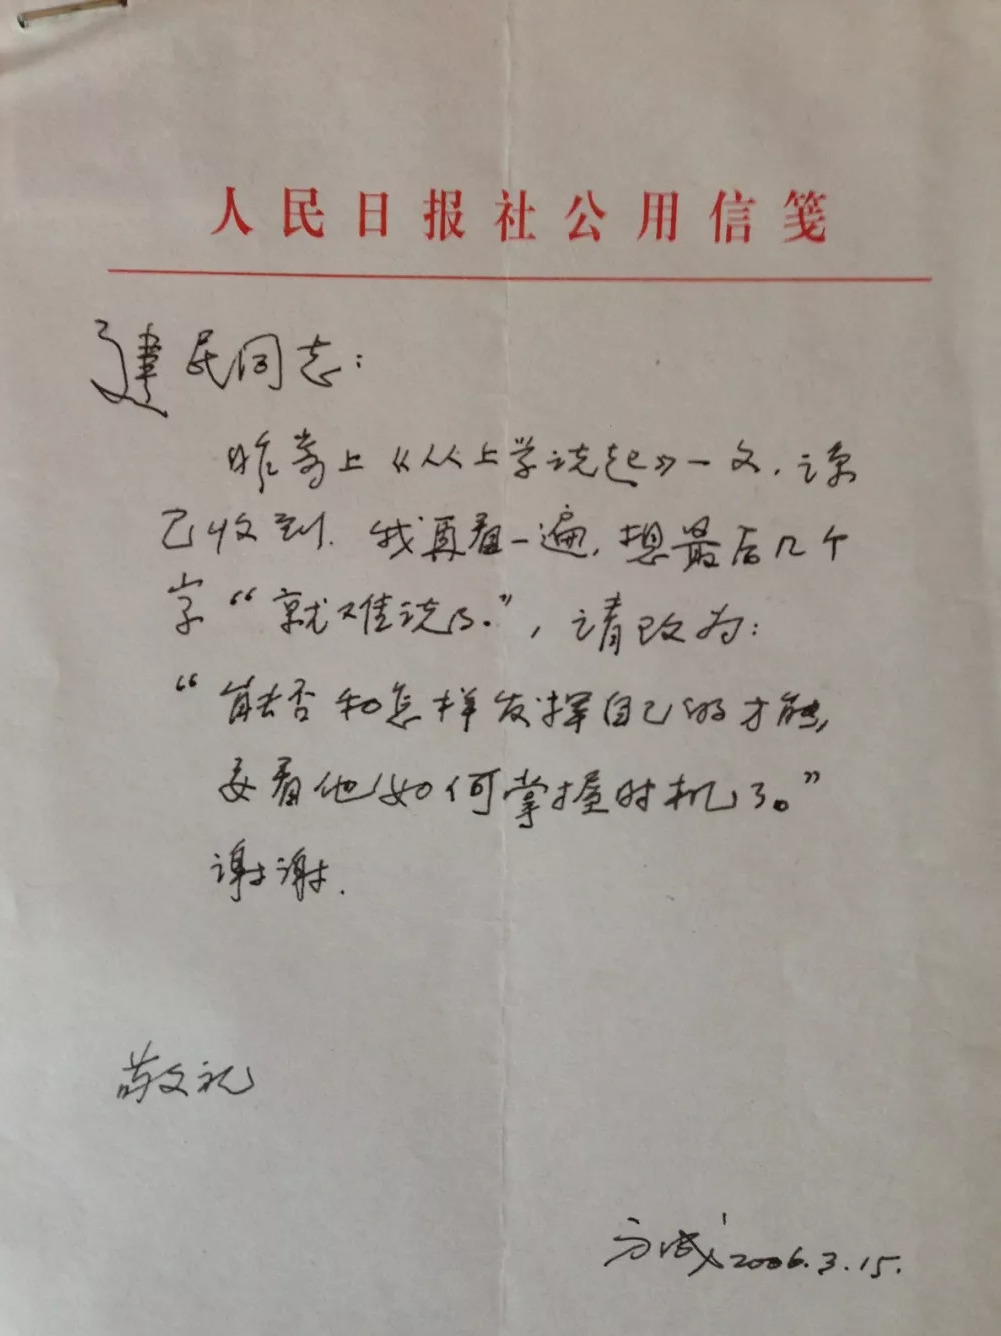 人民日报社公用信笺
建民同志：
昨寄上《从上学说起》一文，谅
已收到．我再看一遍，想最后几个
字“就难说了．”，请改为：
“能否和怎样发挥自己的才能，
要看他如何掌握时机了。”
谢谢．
敬礼
方成 2006.3.15.